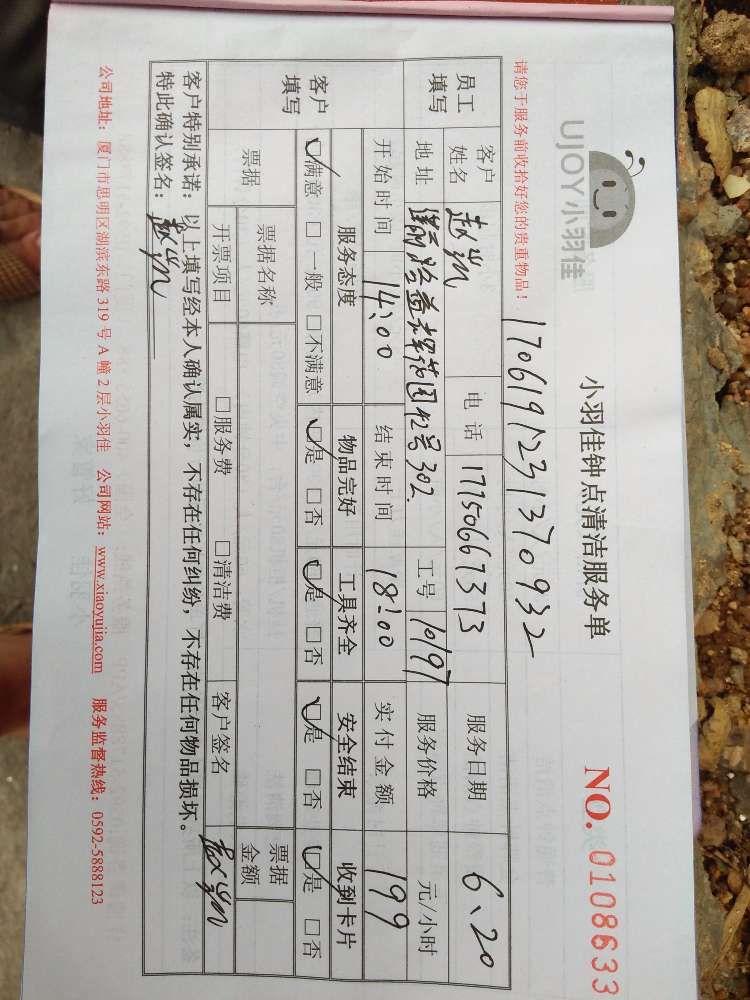 UJOY 小羽佳
小羽佳钟点清洁服务单
NO. 0108633
请您于服务前收拾好您的贵重物品！
1706191231370932
员工填写
客户姓名 赵 电话 17750667373 服务日期 6、20
地址 益辉花园42号302 工号 10197 服务价格 元/小时
开始时间 14:00 结束时间 18:00 实付金额 199
客户填写
服务态度 物品完好 工具齐全 安全结束 收到卡片
☑满意 □一般 □不满意 ☑是 □否 ☑是 □否 ☑是 □否 ☑是 □否
票据 票据名称 票据金额
开票项目 □服务费 □清洁费 客户签名 赵
客户特别承诺：以上填写经本人确认属实，不存在任何纠纷，不存在任何物品损坏。
特此确认签名：赵
公司地址：厦门市思明区湖滨东路 319 号 A 幢 2 层小羽佳 公司网站：www.xiaoyujia.com 服务监督热线：0592-5888123